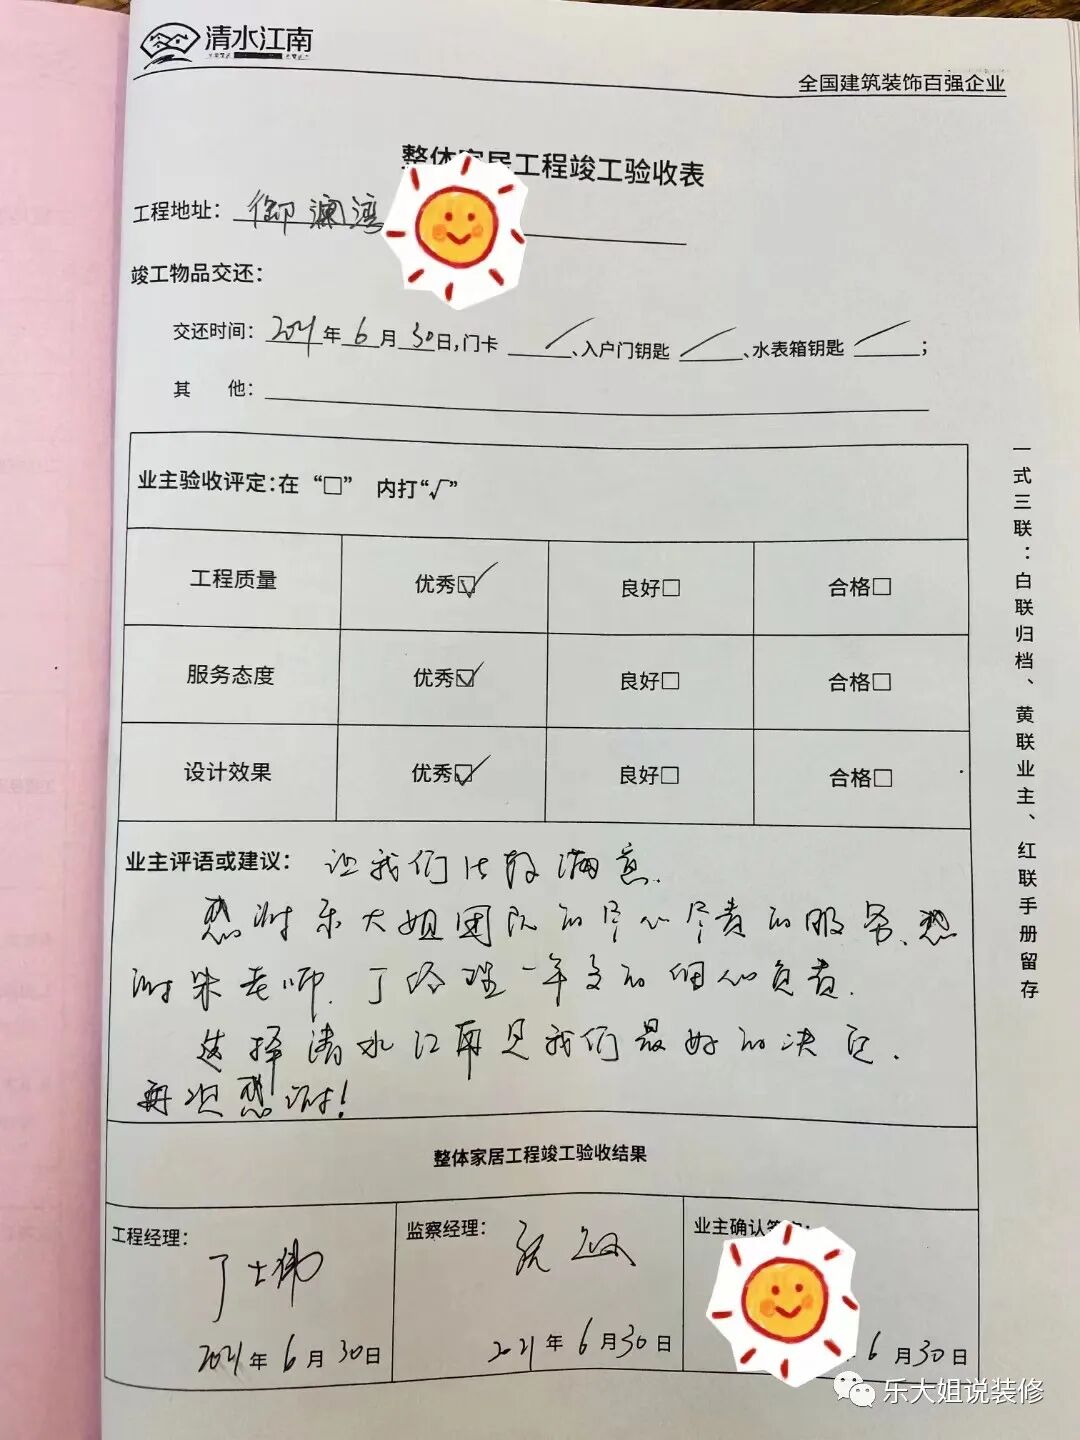 清水江南
全国建筑装饰百强企业
整体家居工程竣工验收表
工程地址： 御澜湾
竣工物品交还：
交还时间：2021年6月30日,门卡／、入户门钥匙／、水表箱钥匙／；
其 他：
业主验收评定：在“□” 内打“√”
工程质量 优秀☑ 良好□ 合格□
服务态度 优秀☑ 良好□ 合格□
设计效果 优秀☑ 良好□ 合格□
业主评语或建议： 让我们比较满意.
感谢乐大姐团队的尽心尽责的服务、感
谢朱老师.丁经理一年多的细心负责.
选择清水江南是我们最好的决定.
再次感谢!
整体家居工程竣工验收结果
工程经理： 监察经理： 业主确认
丁士伟
2021年6月30日 2021年6月30日 6月30日
一式三联：白联归档、黄联业主、红联手册留存
乐大姐说装修